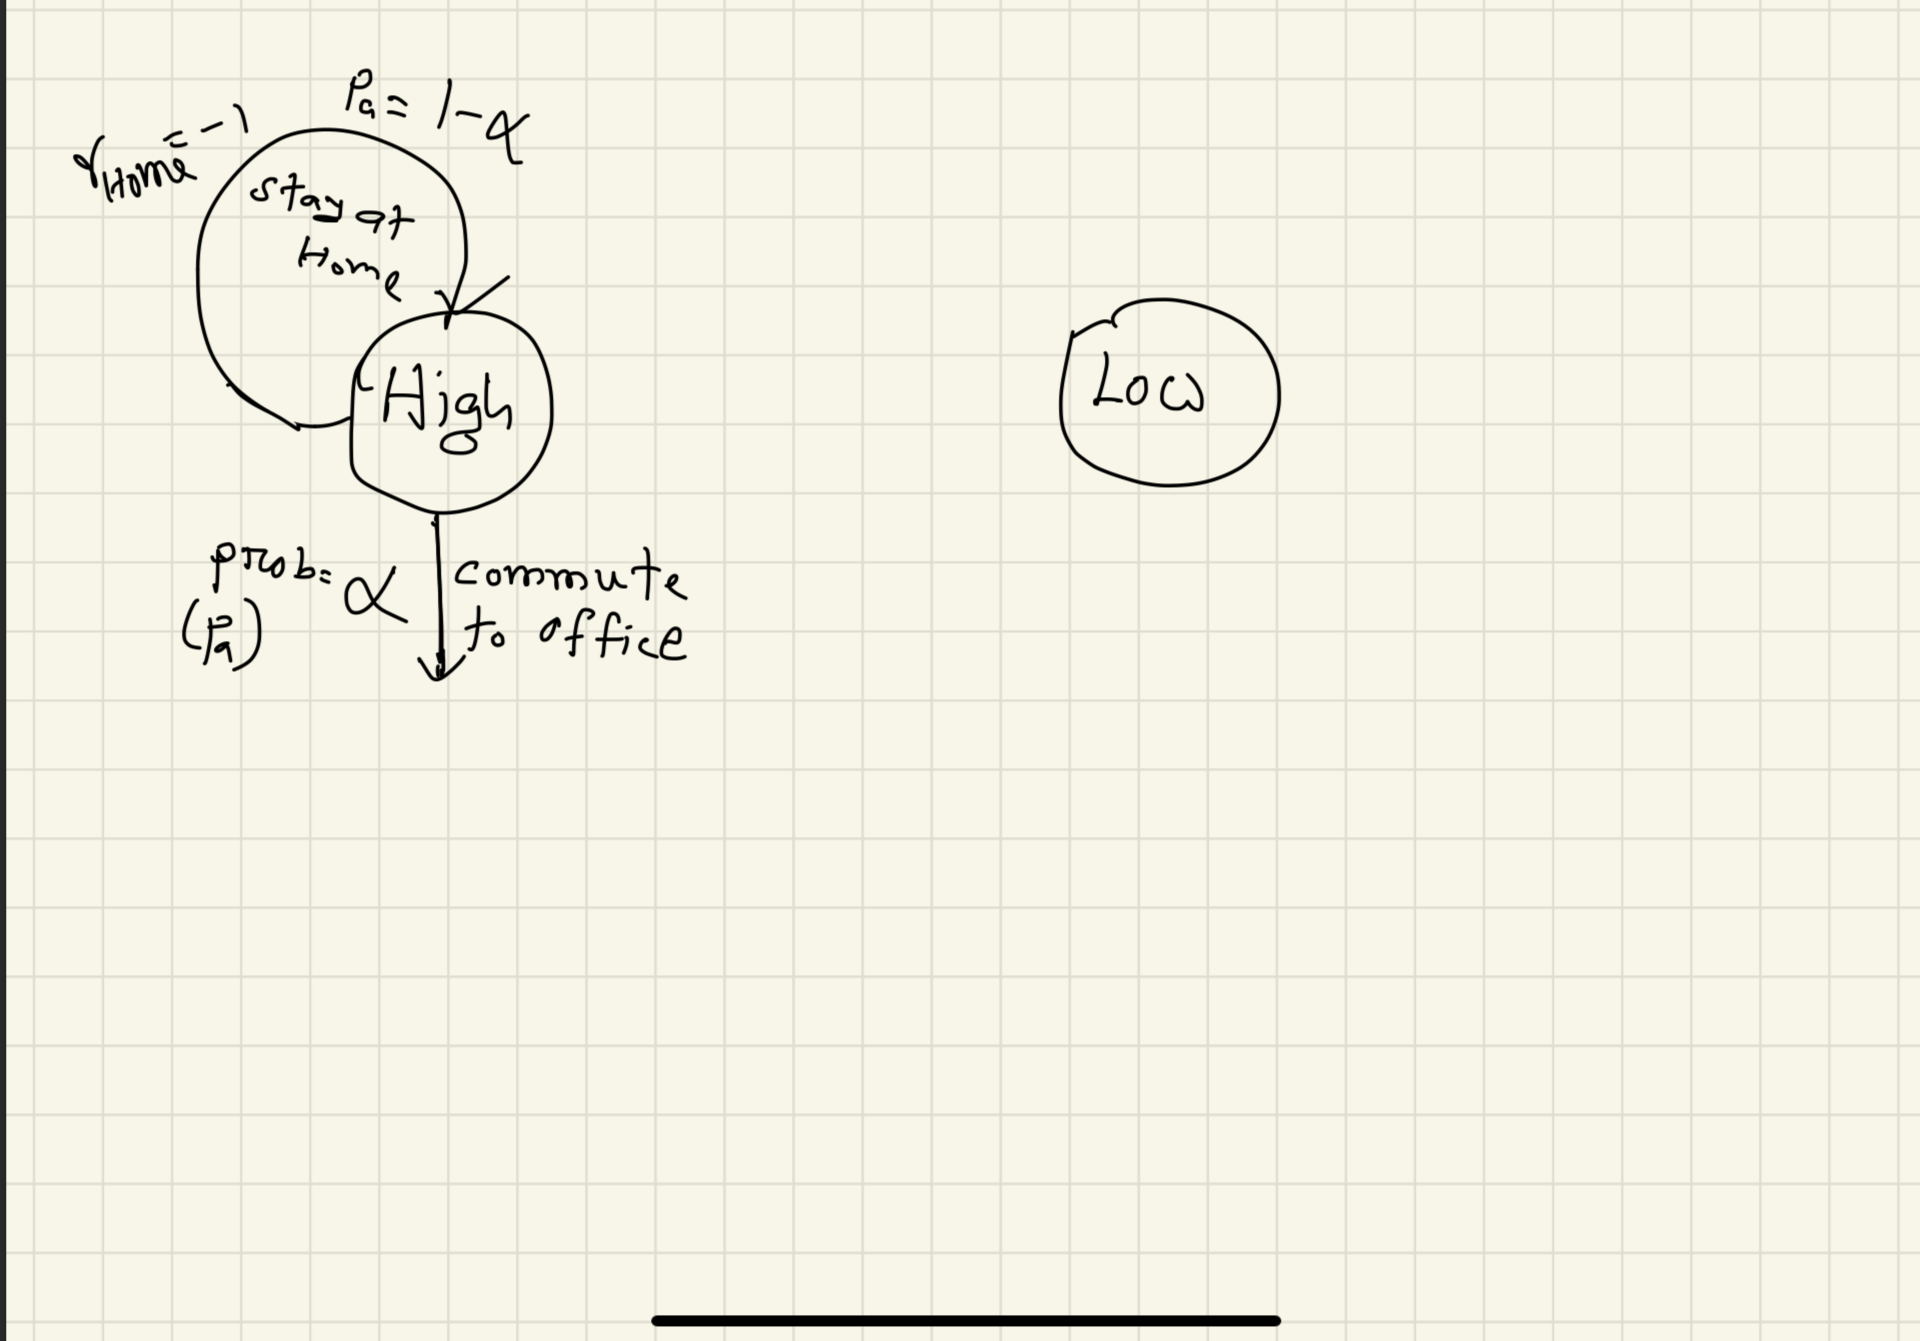 Pa = 1-α
rHome = -1
stay at
Home
High
Low
prob = α
(Pa)
commute
to office